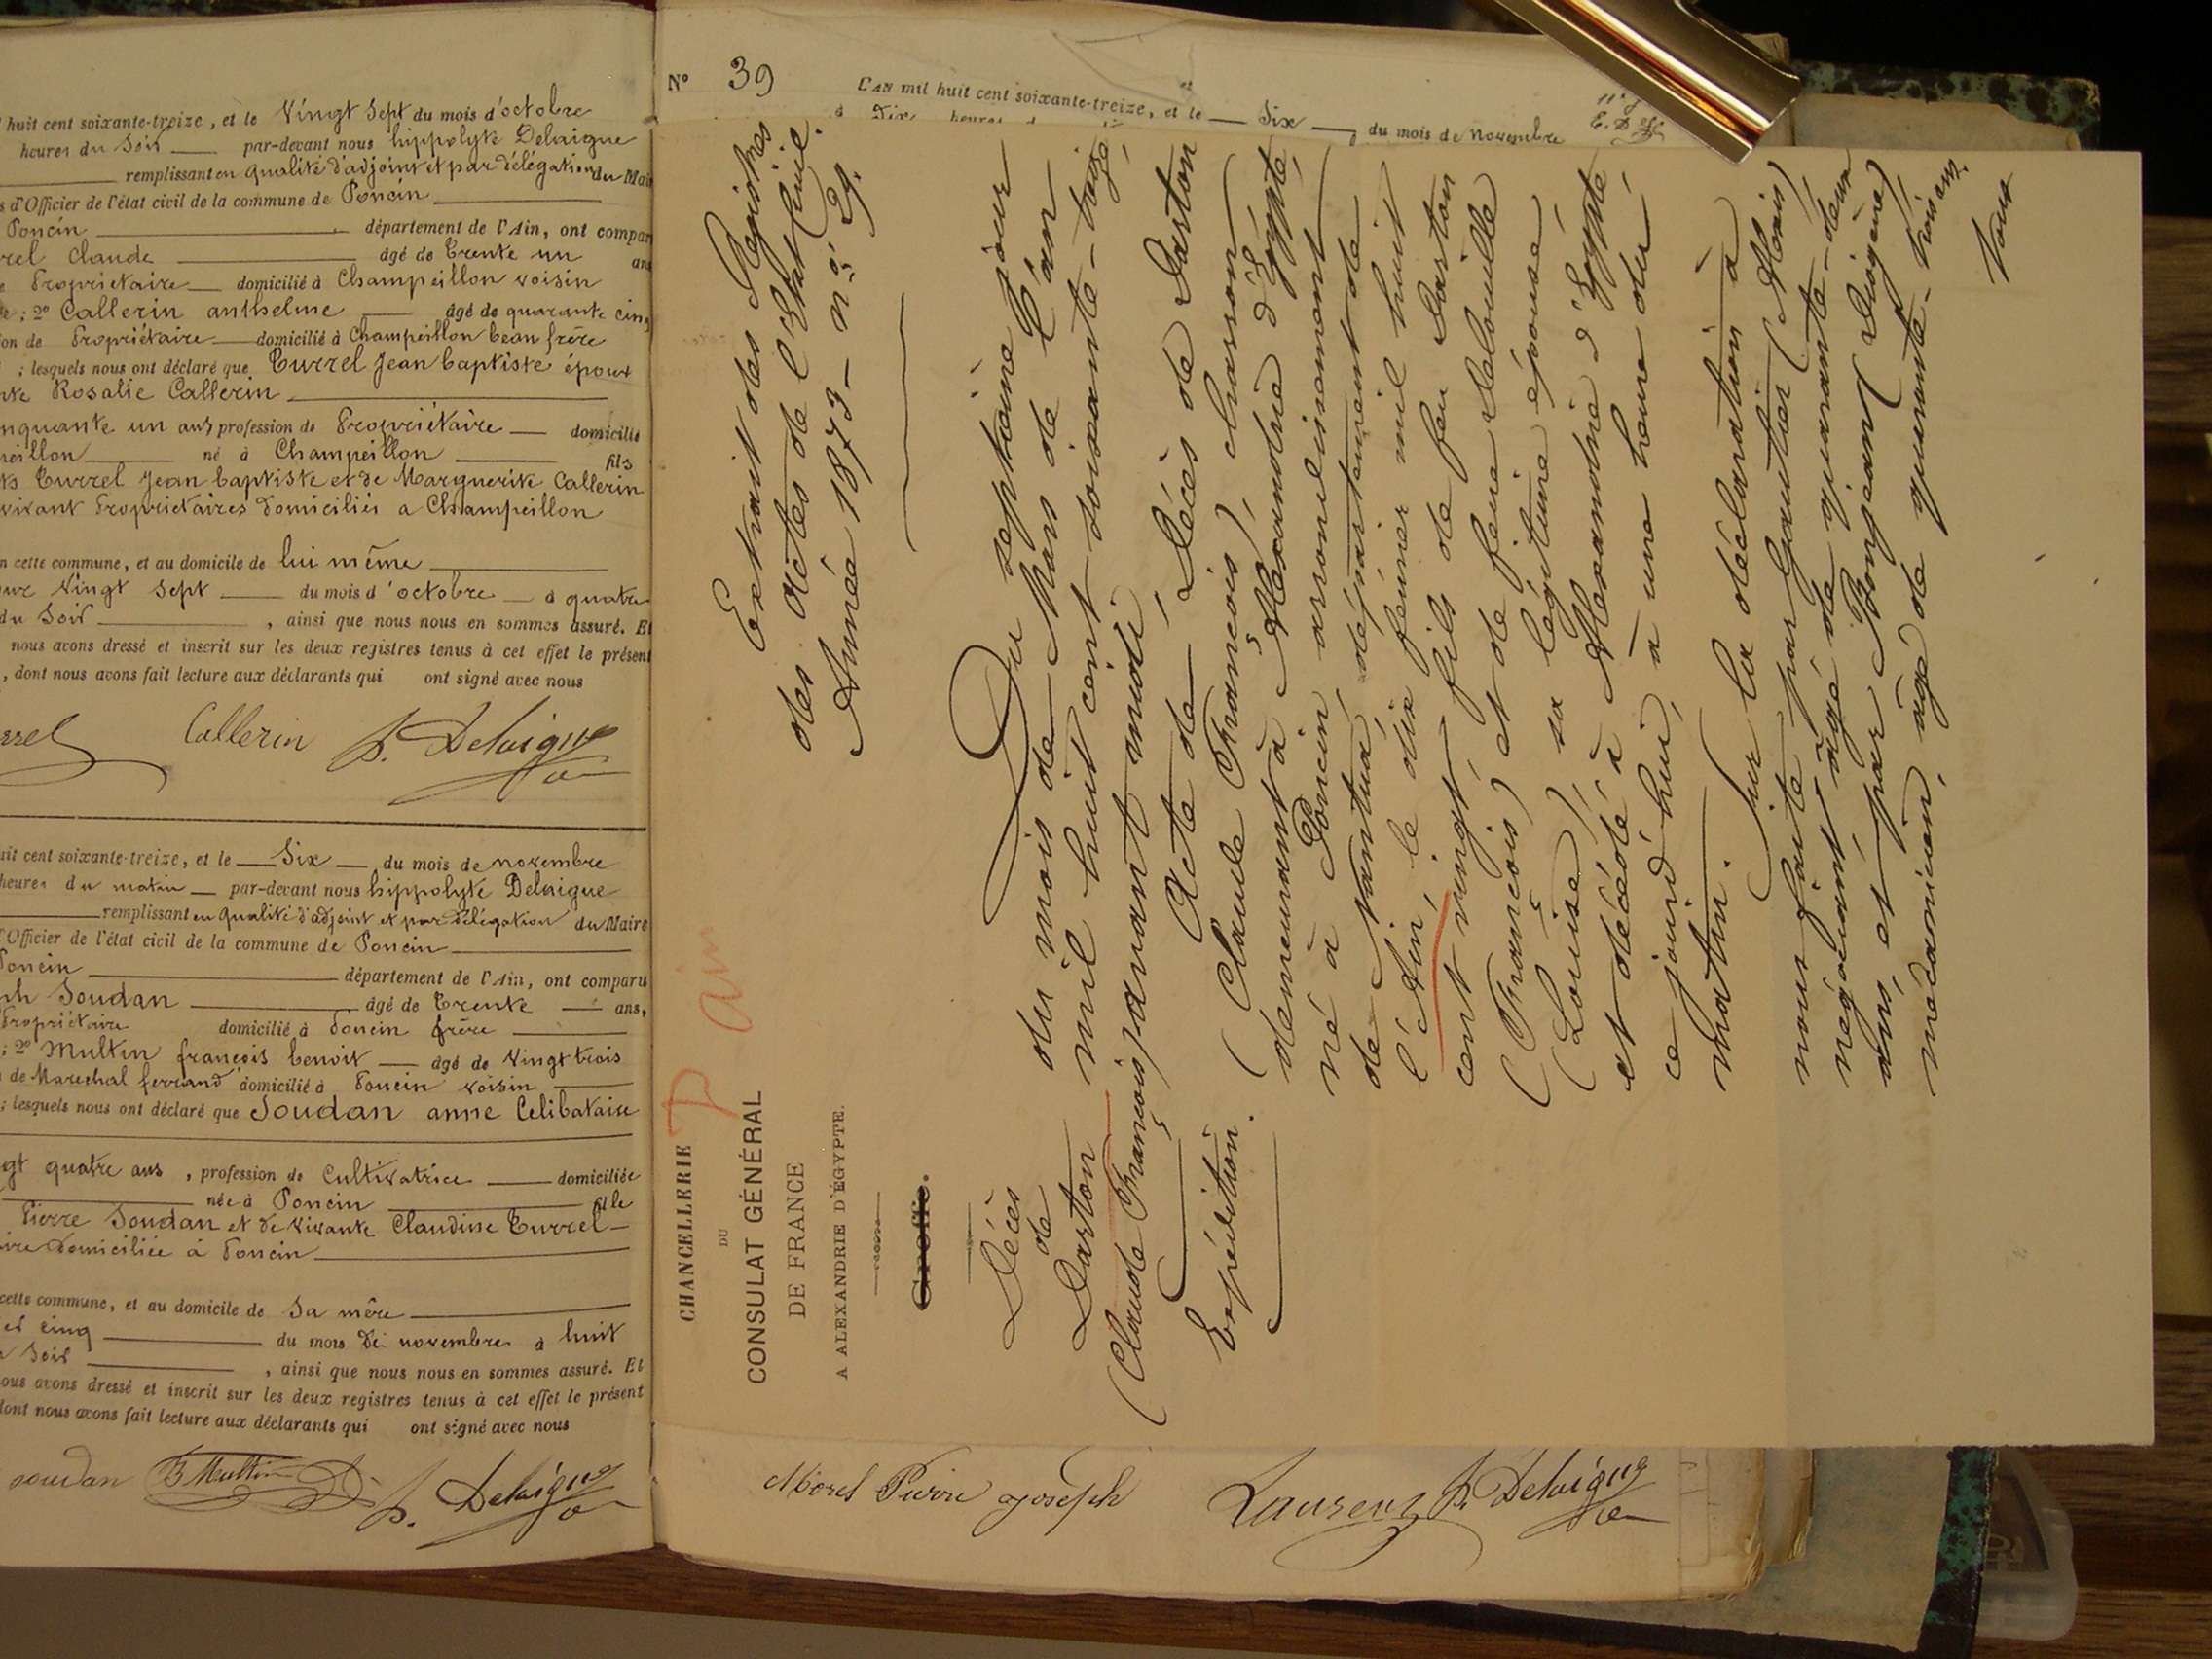 huit cent soixante-treize, et le Vingt Sept du mois d'octobre
heures du Soir par-devant nous hippolyte Delaigue
remplissant en qualité d'adjoint et par délégation du Mai
s d'Officier de l'état civil de la commune de Poncin
Poncin département de l'Ain, ont compar
rel Claude âgé de Trente un ans
Propriétaire domicilié à Champeillon voisin
; 2º Callerin anthelme âgé de quarante cinq
ion de Propriétaire domicilié à Champeillon beau frère
; lesquels nous ont déclaré que Turrel Jean baptiste époux
nte Rosalie Callerin
nquante un ans profession de Propriétaire domicilié
peillon né à Champeillon fils
ts Turrel Jean baptiste et de Marguerite Callerin
vivant Propriétaires domiciliés a Champeillon
n cette commune, et au domicile de lui même
our Vingt Sept du mois d'octobre à quatre
du Soir , ainsi que nous nous en sommes assuré. Et
nous avons dressé et inscrit sur les deux registres tenus à cet effet le présent
, dont nous avons fait lecture aux déclarants qui ont signé avec nous
rrel Callerin h. Delaigue
uit cent soixante-treize, et le Six du mois de novembre
heures du matin par-devant nous hippolyte Delaigue
remplissant en qualité d'adjoint et par délégation du Maire
d'Officier de l'état civil de la commune de Poncin
Poncin département de l'Ain, ont comparu
ph Soudan âgé de Trente ans,
Propriétaire domicilié à Poncin frère
; 2º Multin françois benoit âgé de Vingt trois
de Marechal ferrand domicilié à Poncin voisin
; lesquels nous ont déclaré que Soudan anne Célibataire
gt quatre ans , profession de Cultivatrice domiciliée
née à Poncin fille
Pierre Soudan et de vivante Claudine Turrel
ire domiciliée à Poncin
cette commune, et au domicile de Sa mère
cinq du mois de novembre à huit
Soir , ainsi que nous nous en sommes assuré. Et
ous avons dressé et inscrit sur les deux registres tenus à cet effet le présent
dont nous avons fait lecture aux déclarants qui ont signé avec nous
soudan B Multin h. Delaigue
Nº 39
L'AN mil huit cent soixante-treize, et le Six du mois de novembre
à Dix heures
CHANCELLERIE
DU
CONSULAT GÉNÉRAL
DE FRANCE
A ALEXANDRIE D'ÉGYPTE.
Greffe.
P ain
Décès
de
Darton
(Claude François)
Expédition.
Extrait des Registres
des Actes de l'Etat Civil.
Année 1873 – nº 29.
Du septième jour
du mois de Mars de l'an
mil huit cent soixante-treize,
avant midi.
Acte de Décès de Darton
(Claude François), charron
demeurant à Alexandrie d'Egypte,
né à Poncin, arrondissement
de Nantua, département de
l'Ain, le dix février mil huit
cent vingt, fils de feu Darton
(François) et de feue Delouille
(Louise), sa légitime épouse,
et décédé à Alexandrie d'Egypte,
ce jourd'hui, à une heure du
matin.
Sur la déclaration à
nous faite par Gautier (Alexis)
négociant, âgé de quarante-deux
ans, et par Bonjean (Diogène)
mécanicien, âgé de quarante-trois ans.
Nous
Morel Pierre joseph Laurent h. Delaigue